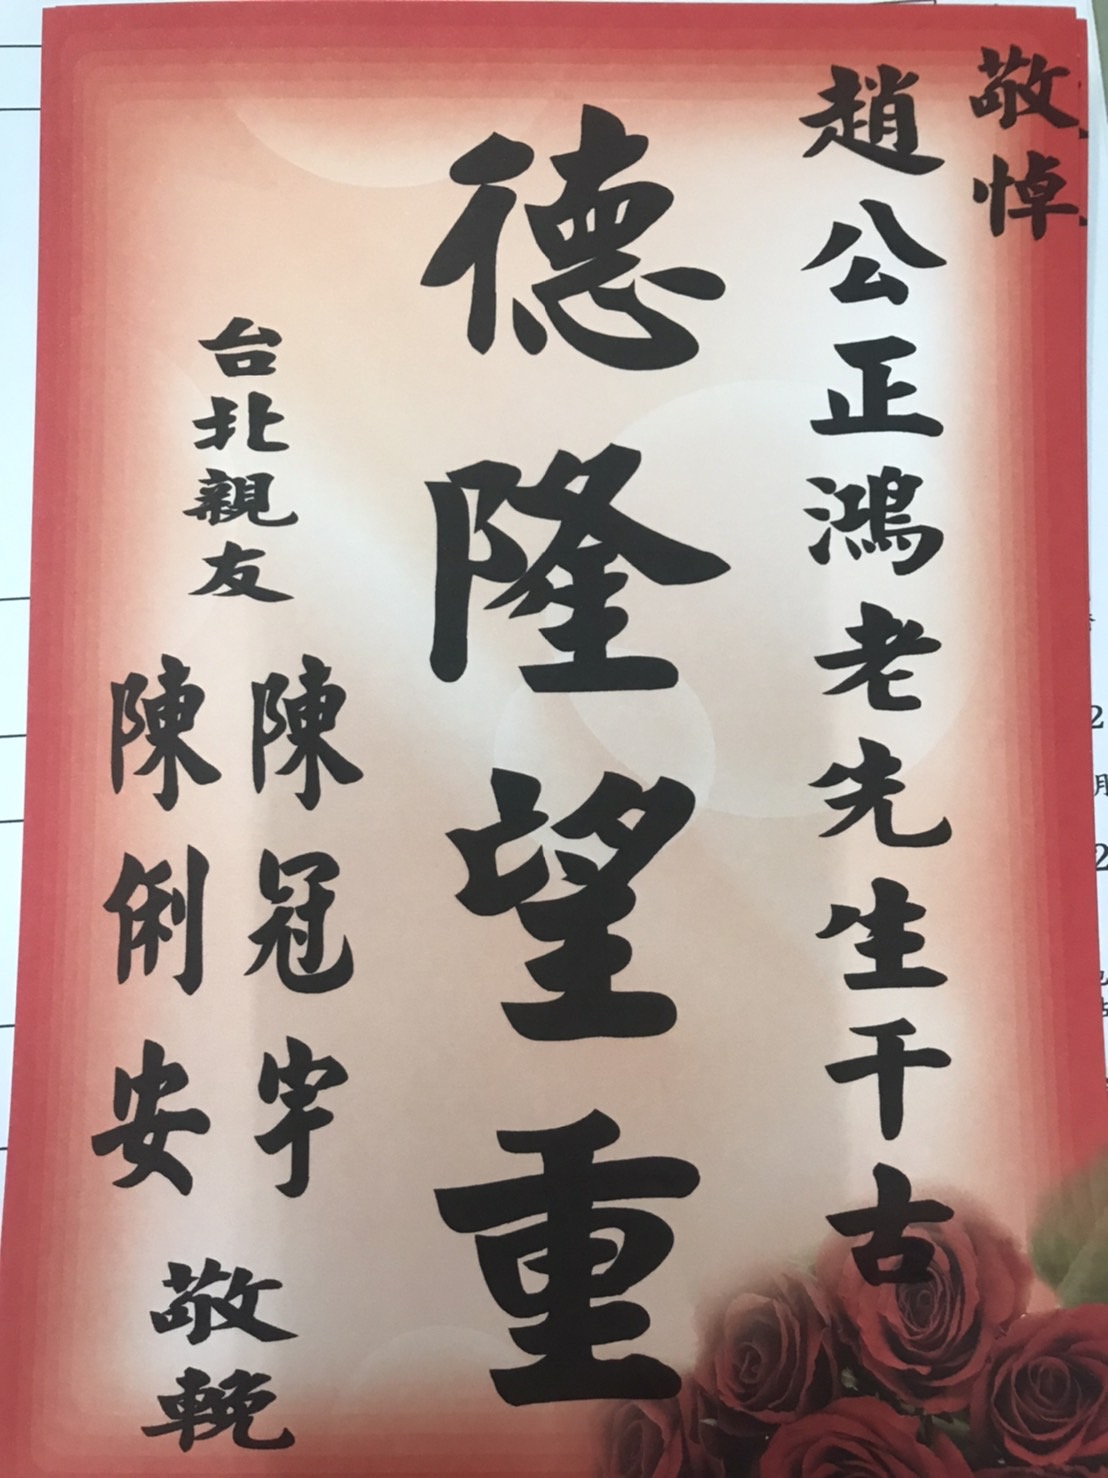 敬悼
趙公正鴻老先生千古
德隆望重
台北親友
陳冠宇
陳俐安
敬輓
2
月
2